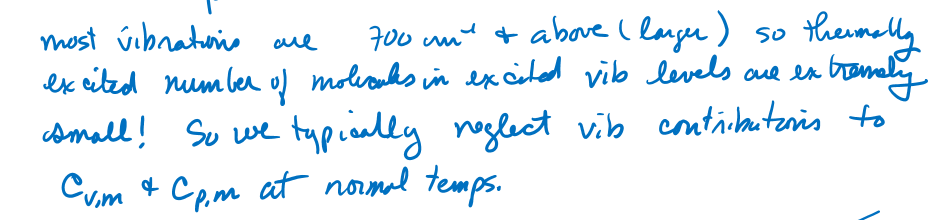 most vibrations are 700 cm⁻¹ & above (larger) so thermally
excited number of molecules in excited vib levels are extremely
small! So we typically neglect vib contributions to
Cv,m & Cp,m at normal temps.